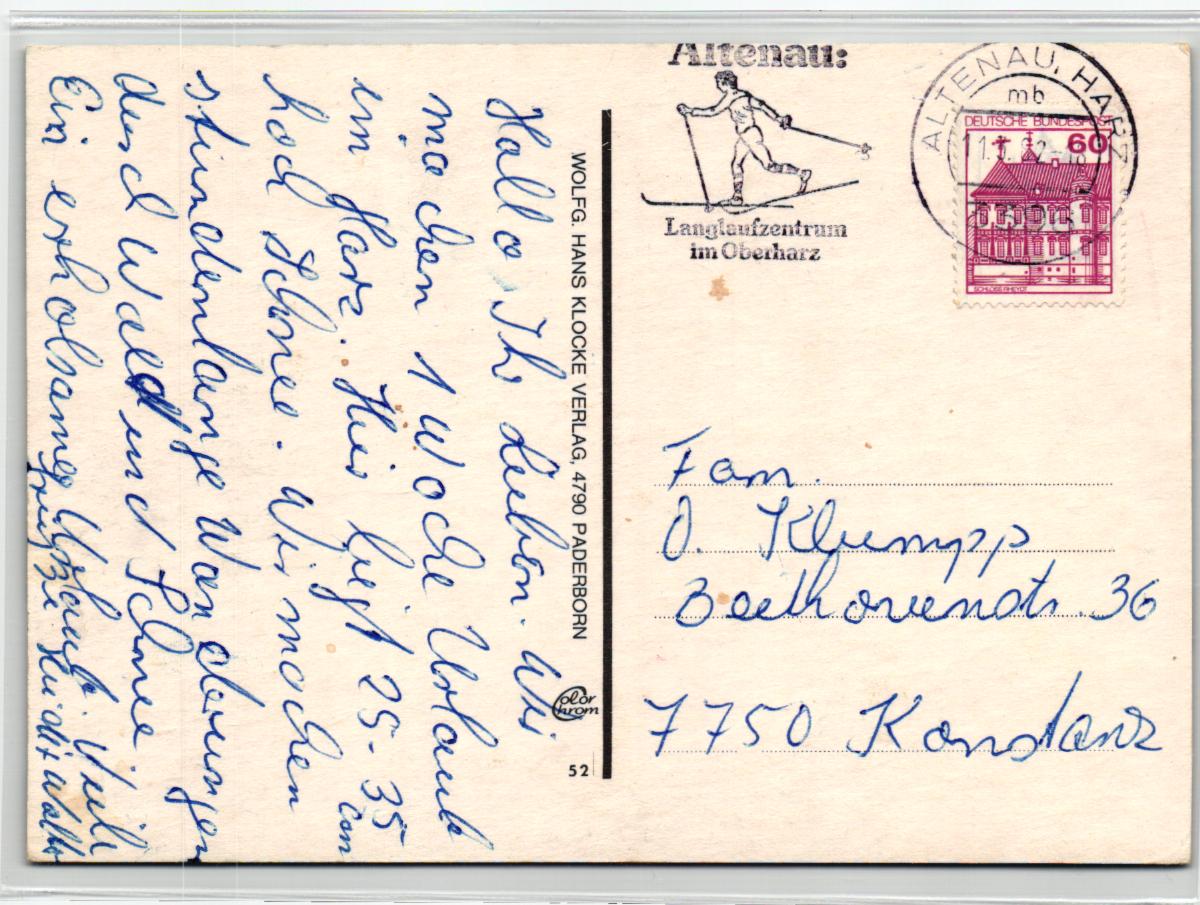 Hallo Ihr Lieben. Wir
machen 1 Woche Urlaub
im Harz. Hier liegt 25-35 cm
hoch Schnee. Wir machen
stundenlange Wanderungen
durch Wald und Schnee.
Ein erholsamer Urlaub. Viele
Grüße Heidi + Walter
WOLFG. HANS KLOCKE VERLAG, 4790 PADERBORN
Color
Chrom
52
Altenau:
Langlaufzentrum
im Oberharz
ALTENAU, HARZ
mb
DEUTSCHE BUNDESPOST
60
SCHLOSS RHEYDT
Fam.
O. Klumpp
Beethovenstr. 36
7750 Konstanz